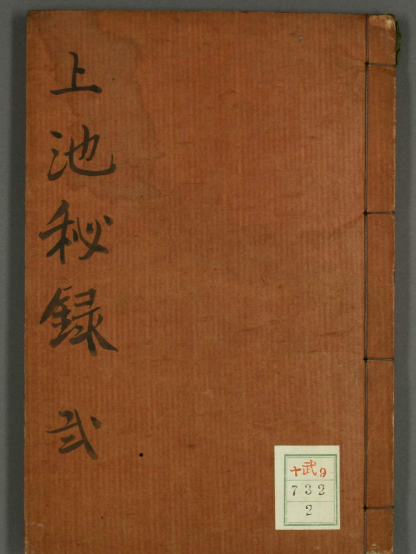 上池秘録 弍
十武9
732
2